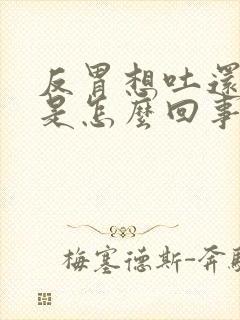 反胃想吐還
是怎麼回事
梅塞德斯-奔馳